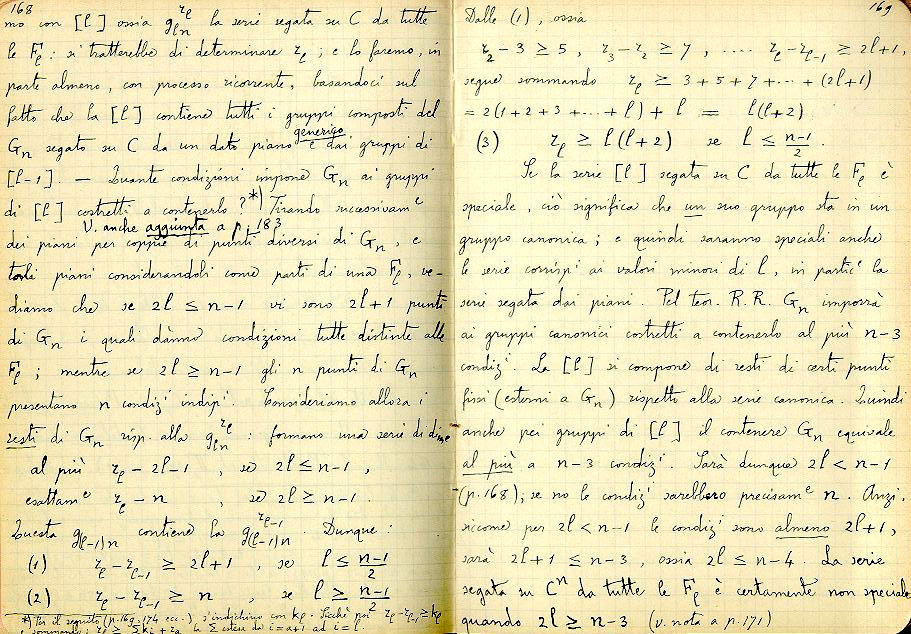 168
mo con [l] ossia g_{ln}^{r_l} la serie segata su C da tutte
le F_l : si tratterebbe di determinare r_l ; e lo faremo, in
parte almeno, con processo ricorrente, basandoci sul
fatto che la [l] contiene tutti i gruppi composti del
G_n segato su C da un dato piano generico e dai gruppi di
[l-1]. — Quante condizioni impone G_n ai gruppi
di [l] costretti a contenerlo ? *) Tirando successivam^e
V. anche aggiunta a p. 183
dei piani per coppie di punti diversi di G_n, e
tali piani considerandoli come parti di una F_l, ve-
diamo che se 2l ≤ n-1 vi sono 2l+1 punti
di G_n i quali dànno condizioni tutte distinte alle
F_l ; mentre se 2l ≥ n-1 gli n punti di G_n
presentano n condiz^i indip^i. Consideriamo allora i
resti di G_n risp. alla g_{ln}^{r_l} : formano una serie di dim^e
al più r_l - 2l - 1 , se 2l ≤ n-1 ,
esattam^e r_l - n , se 2l ≥ n-1 .
Questa g_{(l-1)n} contiene la g_{(l-1)n}^{r_{l-1}} . Dunque :
(1) r_l - r_{l-1} ≥ 2l+1 , se l ≤ \frac{n-1}{2}
(2) r_l - r_{l-1} ≥ n , se l ≥ \frac{n-1}{2}
*) Per il seguito (p. 169, 174 ecc.), s'indichino con k_l. Sicchè poi r_l - r_{l-1} ≥ k_l
e sommando: r_l ≥ Σk_i + r_a la Σ estesa da i=a+1 ad i=l.
169
Dalle (1), ossia
r_2 - 3 ≥ 5 , r_3 - r_2 ≥ 7 , .... r_l - r_{l-1} ≥ 2l+1,
segue sommando r_l ≥ 3+5+7+...+(2l+1)
= 2(1+2+3+...+l)+l = l(l+2)
(3) r_l ≥ l(l+2) se l ≤ \frac{n-1}{2} .
Se la serie [l] segata su C da tutte le F_l è
speciale, ciò significa che un suo gruppo sta in un
gruppo canonico ; e quindi saranno speciali anche
le serie corrisp^i ai valori minori di l, in partic^e la
serie segata dai piani. Pel teor. R.R. G_n imporrà
ai gruppi canonici costretti a contenerlo al più n-3
condiz^i. La [l] si compone di resti di certi punti
fissi (esterni a G_n) rispetto alla serie canonica. Quindi
anche pei gruppi di [l] il contenere G_n equivale
al più a n-3 condiz^i. Sarà dunque 2l < n-1
(p.168); se no le condiz^i sarebbero precisam^e n. Anzi,
siccome per 2l < n-1 le condiz^i sono almeno 2l+1,
sarà 2l+1 ≤ n-3, ossia 2l ≤ n-4. La serie
segata su C^n da tutte le F_l è certamente non speciale
quando 2l ≥ n-3 (v. nota a p. 171)